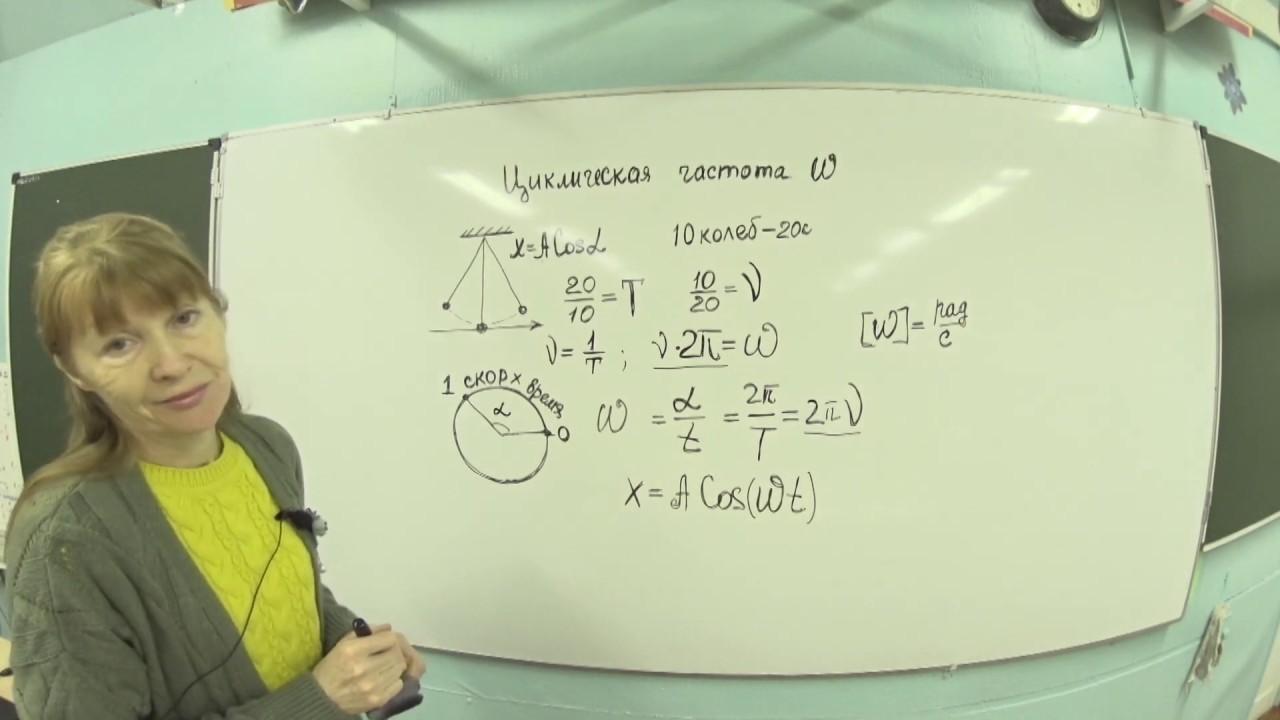 Циклическая частота ω
x=A Cosα
10 колеб-20с
20/10=T
10/20=ν
ν=1/T ; ν·2π=ω
[ω]=рад/с
1 скор х время
α
0
ω =α/t =2π/T=2πν
x=A Cos(ωt)